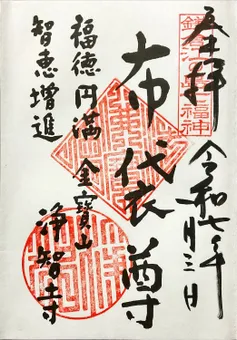 奉拝
鎌倉江の島七福神
令和七年
一月三日
布袋尊
福徳円満
智恵増進
金寶山
浄智寺